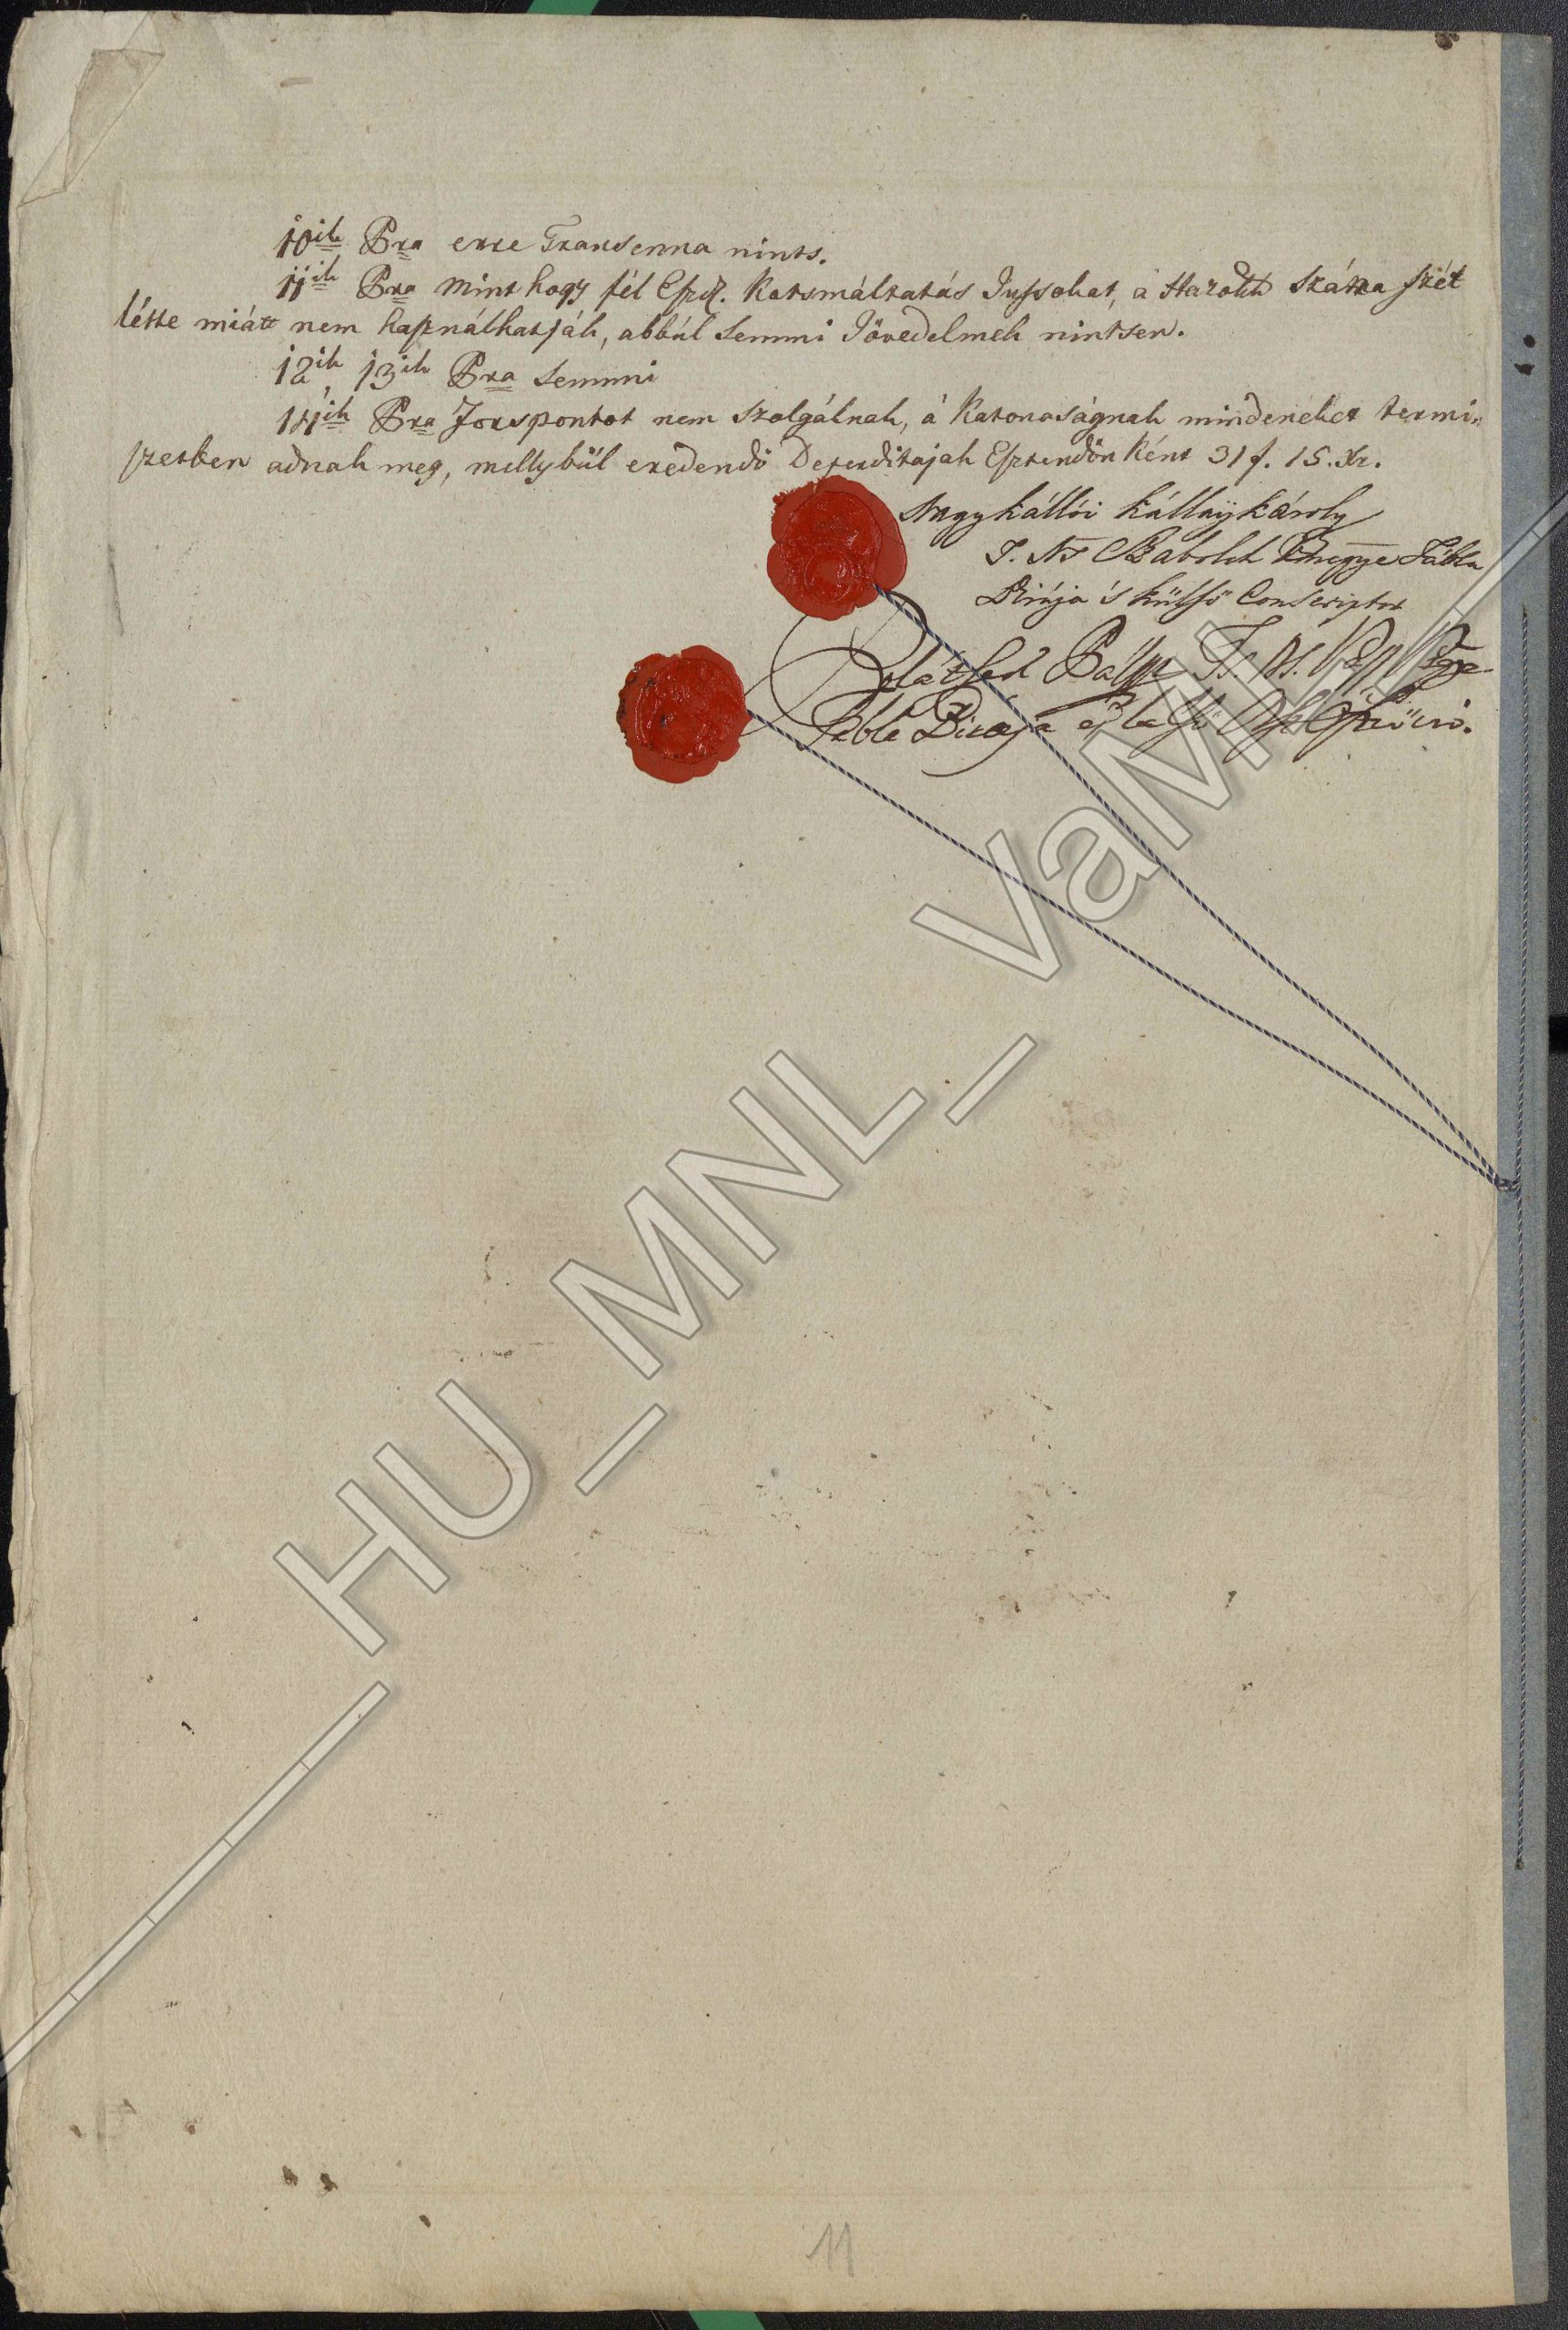 10ik Pra erre Transenna nints.
11ik Pra Mint hogy fél Eszt. Kortsmáltatás Jussokat, a Hazok szátza szét
létte miátt nem használhatják, abbúl Semmi Jövedelmek nintsen.
12ik, 13ik Pra Semmi
14ik Pra Forspontot nem szolgálnak, á Katonaságnak mindeneket termé-
szetben adnak meg, mellybül eredendö Deperditájak Esztendön Ként 31 f. 15. Xr.
Nagykállói Kállaÿ Károly
T. Ns Szabolch Vmegye Tábla
Birája 's külsö Conscriptor
Pál T. N.
Tábla Birája és belsö
11
HU_MNL_VaML